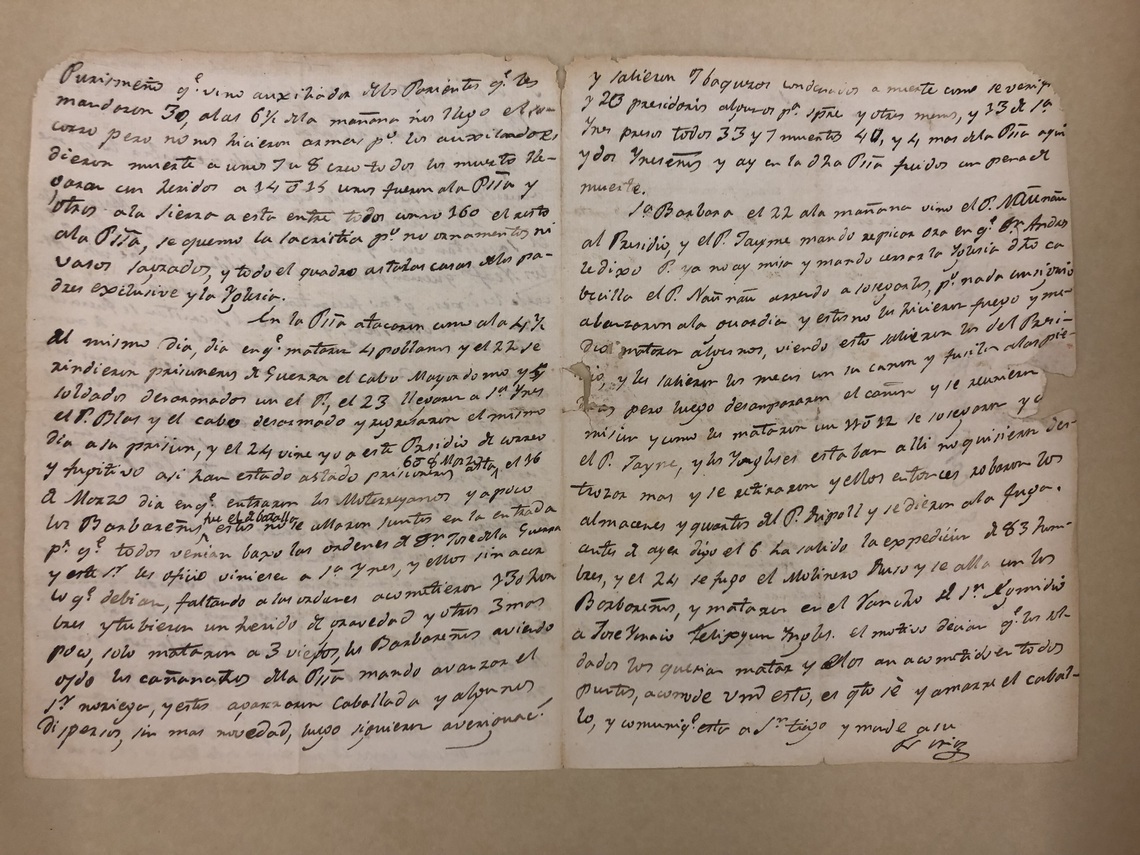 Purismeño q.e vino auxiliador de los Parientes q.e les
mandaron 30, a las 6½ de la mañana nos llego el so-
corro pero no nos hicieron armas p.o los auxiliadores
dieron muerte a unos 7 u 8 creo todos los muerto lle-
garan con heridos a 14 o 15 unos fueron a la Pssa y
otros a la sierra a esta entre todos como 160 el resto
ala Pssa, se quemo la sacristia p.o no ornamentos ni
vasos sagrados, y todo el quadro a todas casas de los pa-
dres exclusive y la Yglesia.
En la Pssa atacaron como a la 4½
del mismo dia, dia en q.e mataron 4 poblanos y el 22 se
rindieron prisioneros de Guerra el cabo Mayordomo y
soldados desarmados con el P., el 23 llevaron a S.ta Ynes
el P. Blas y el cabo desarmado y regresaron el mismo
dia a su prision, y el 24 vine yo a este Presidio de correo
y fugitivo asi han estado astado prisioneros asta el 16
de Marzo dia en q.e entraron los Monterreyanos y apoco
los Barbareños, fue el 2 batalla estos no se allaron juntos en la entrada
p.r q.e todos venian baxo las ordenes de Dn Jose de la Guerra
y este S.r les oficio viniesen a S.ta Ynes, y ellos sin acer
lo q.e debian, faltando a las ordenes acometieron 130 hom
bres y tubieron un herido de gravedad y otros 3 mas
poco, solo mataron a 3 viejos, los Barbareños aviendo
oydo los cañonasos de la Pssa mando avanzar el
S.r noriega, y estos agarraron Caballada y algunos
dispersos, sin mas novedad, luego siguieron
y salieron 7 baqueros condenados a muerte como se verifi
y 20 presidarios algunos p.a spre y otros menos, y 13 de S.ta
Ynes presos todos 33 y 7 muertos 40, y 4 mas de la Pssa aqui
y dos Yneseños y ay en la dha Pssa con pena de
muerte.
S.ta Barbara el 22 ala mañana vino el P.
al Presidio, y el P. Jayme mando repicar ora en q.e Dn Andres
le dixo P. ya no ay misa y mando cerrar la Yglesia dho ca
becilla el P. acendo a sosegarlos, p.o nada consiguio
abanzaron ala guardia y estos no les hicieron fuego y me-
dia mataron algunos, viendo esto salieron los del Presi-
dio, y les salieron los mecos con su canon y fusiles
pero luego desanpararon el cañon y se reunieron
mision y como les mataron un 11 o 12 se sosegaron y
el P. Jayme, y los Yngleses estaban alli no quisieron des-
trozar mas y se retiraron y ellos entonces robaron los
almacenes y quartos del P. Ripoll y se dieron a la fuga.
antes de ayer digo el 6 ha salido la expedicion de 83 hom-
bres, y el 24 se fugo el Molinero Ruso y se alla con los
Barbareños, y mataron en el Rancho de S.n Emidio
a Jose Ynacio Felix y un Yngles. el motivo decian q.e los sol-
dados los querian matar y ellos an acometido en todos
puntos, acomode Vmd esto, es qto sè y amarre el cabal-
lo, y comuniq.e esta a S.n tiago y mande a su